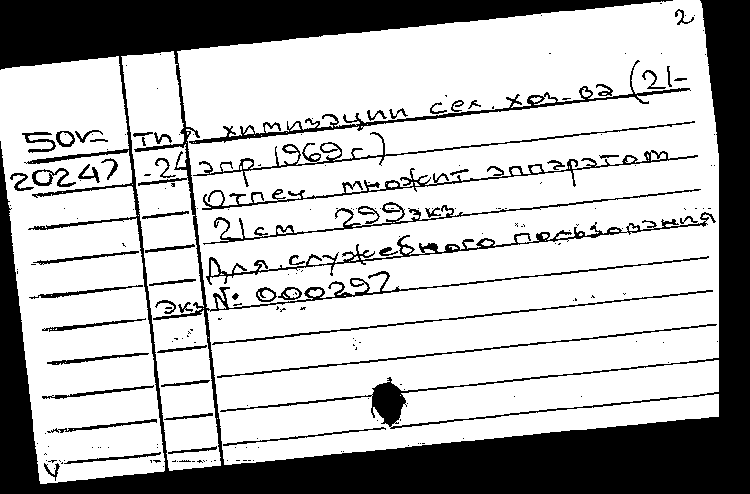 2
50к тия химизации сел. хоз-ва (21-
20247 -24 апр. 1969 г.)
Отпеч. множит. аппаратом
21 см 299 экз.
Для служебного пользования
экз № 000297.